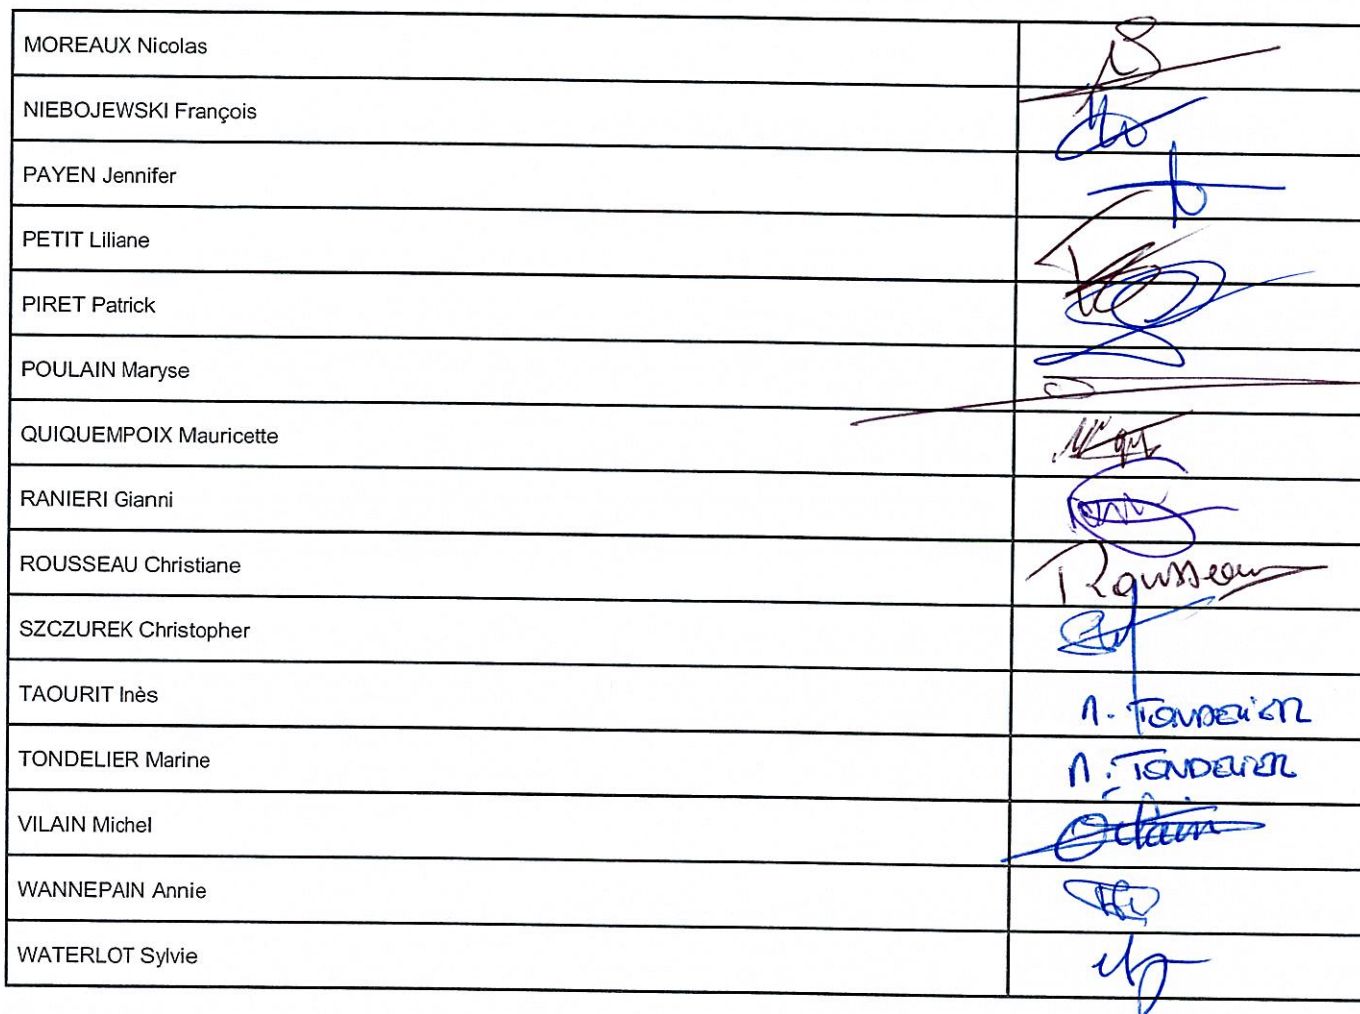 MOREAUX Nicolas
NIEBOJEWSKI François
PAYEN Jennifer
PETIT Liliane
PIRET Patrick
POULAIN Maryse
QUIQUEMPOIX Mauricette
RANIERI Gianni
ROUSSEAU Christiane Rousseau
SZCZUREK Christopher
TAOURIT Inès M. TONDELIER
TONDELIER Marine M. TONDELIER
VILAIN Michel Vilain
WANNEPAIN Annie
WATERLOT Sylvie